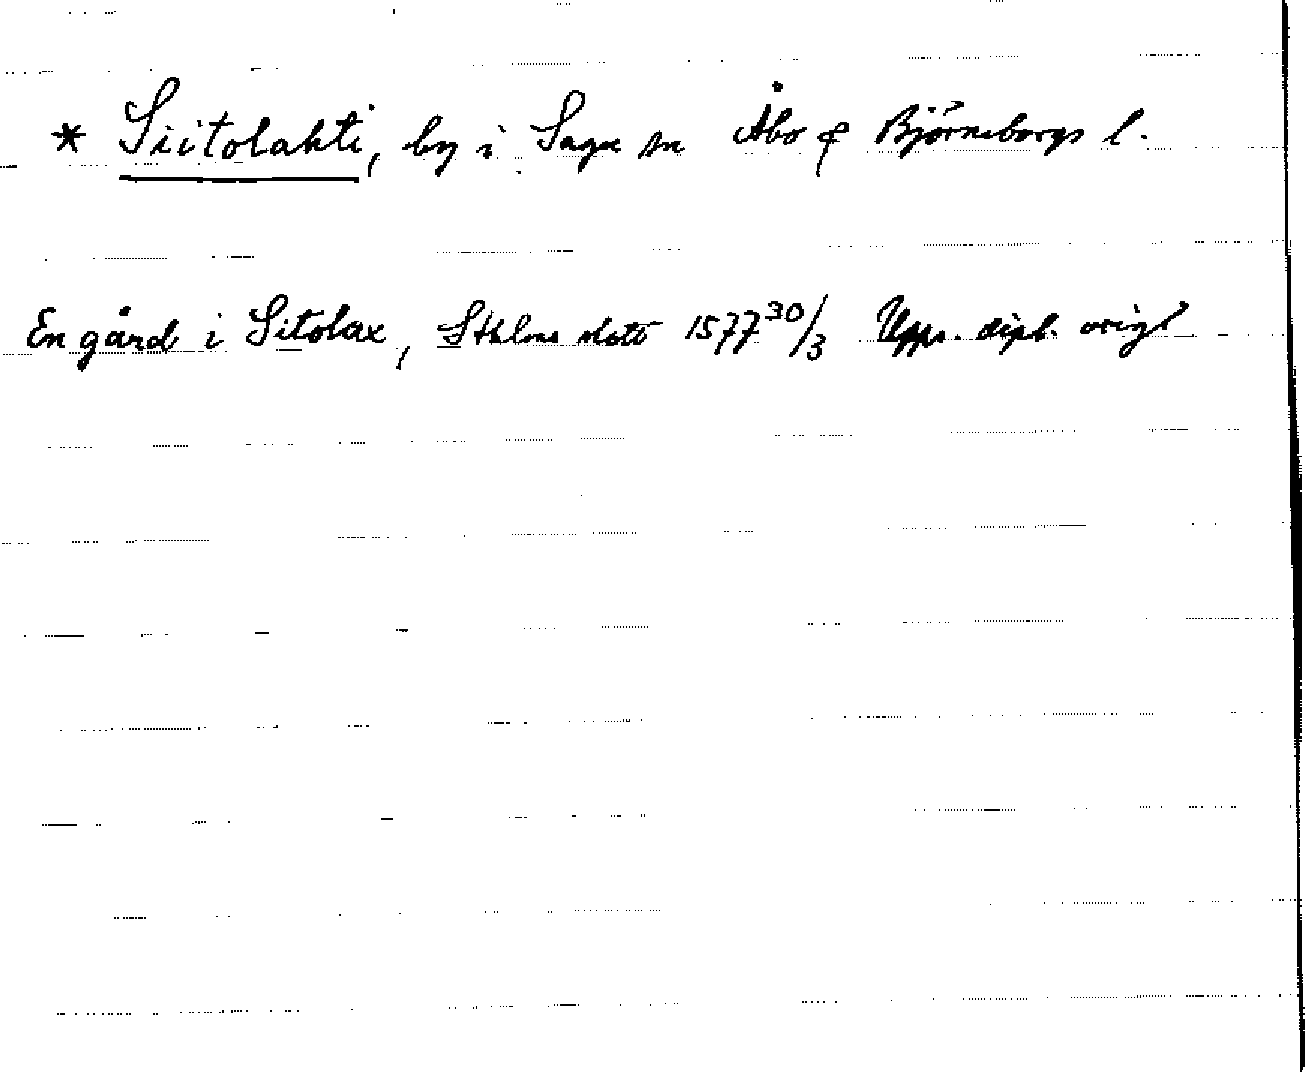 * Siitolahti, by i Sagu sn Åbo & Björneborgs l.
En gård i Sitolax, Sthlms slott 1577 30/3 Upps. dipl. origl